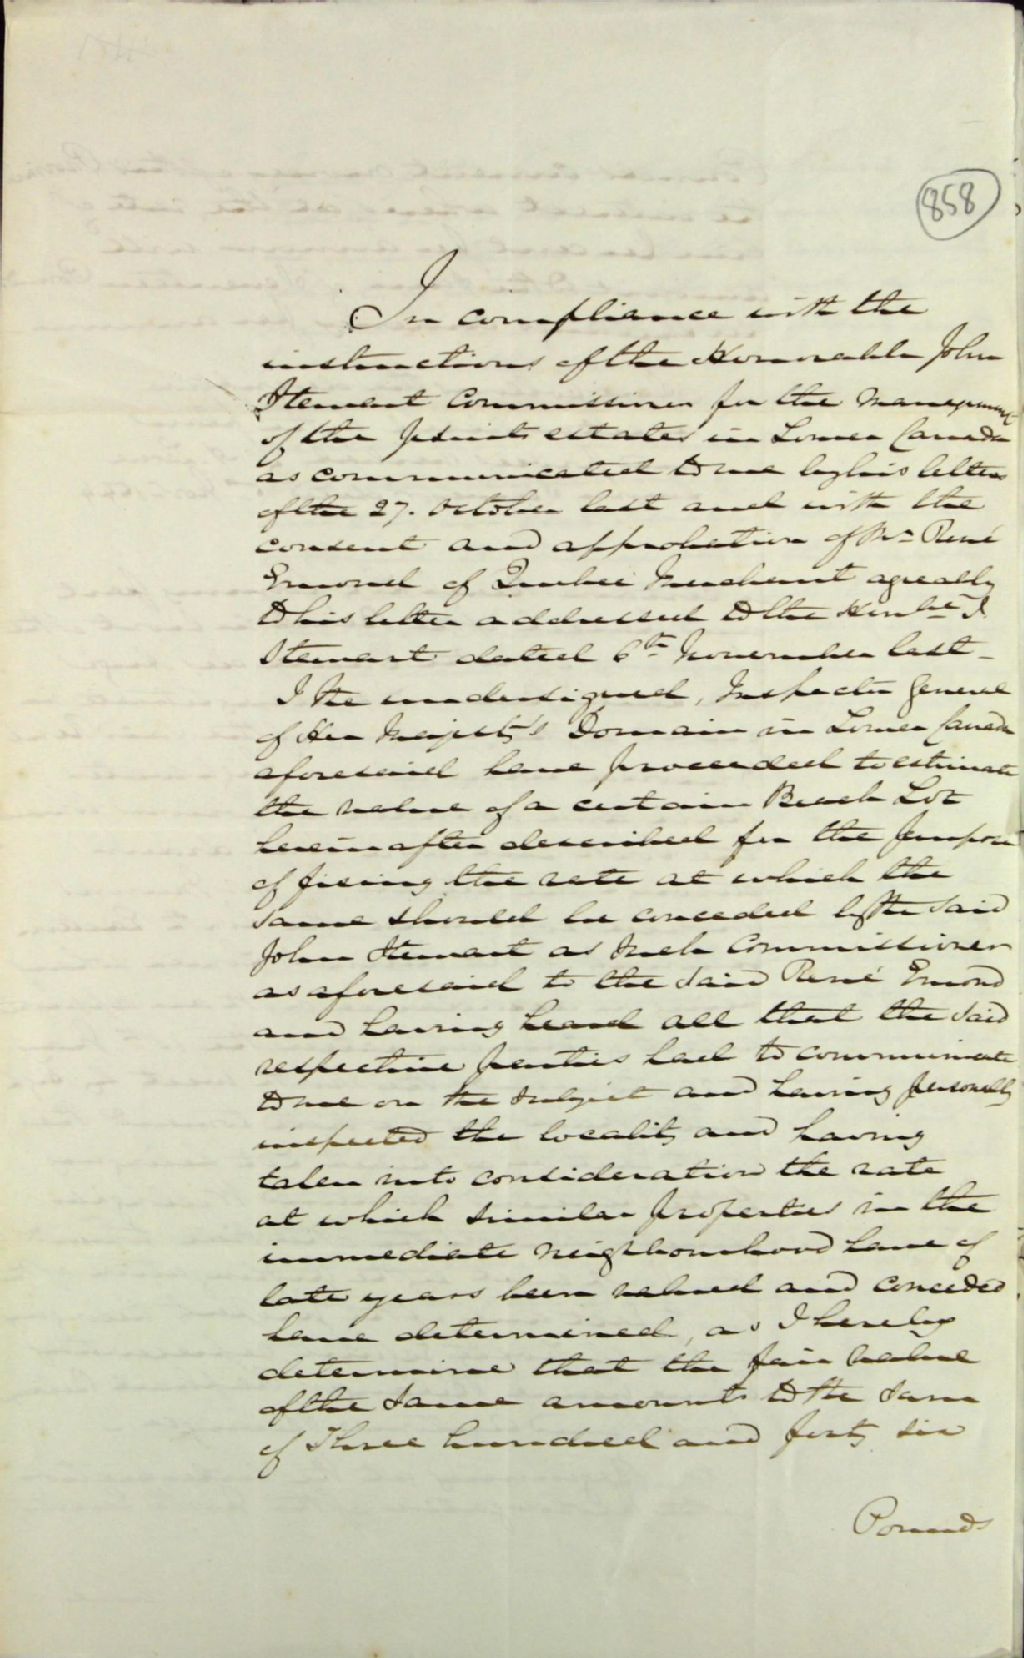 858
In compliance with the
instructions of the Honorable John
Stewart Commissioner for the Management
of the Jesuits estates in Lower Canada
as communicated to me by his letter
of the 27. October last and with the
consent and approbation of Mr René
Emond of Quebec Merchant agreably
to his letter addressed to the Honble J.
Stewart dated 6th November last –
I the undersigned, Inspector General
of Her Majesty's Domain in Lower Canada
aforesaid have proceeded to estimate
the value of a certain Beach Lot
hereinafter described for the purpose
of fixing the rate at which the
same should be conceded by the said
John Stewart as such Commissioner
as aforesaid to the said René Emond
and having heard all that the said
respective parties had to communicate
to me on the subject and having personally
inspected the locality and having
taken into consideration the rate
at which similar properties in the
immediate neighbourhood have of
late years been valued and conceded
have determined, as I hereby
determine that the fair value
of the same amounts to the sum
of Three hundred and forty six
Pounds